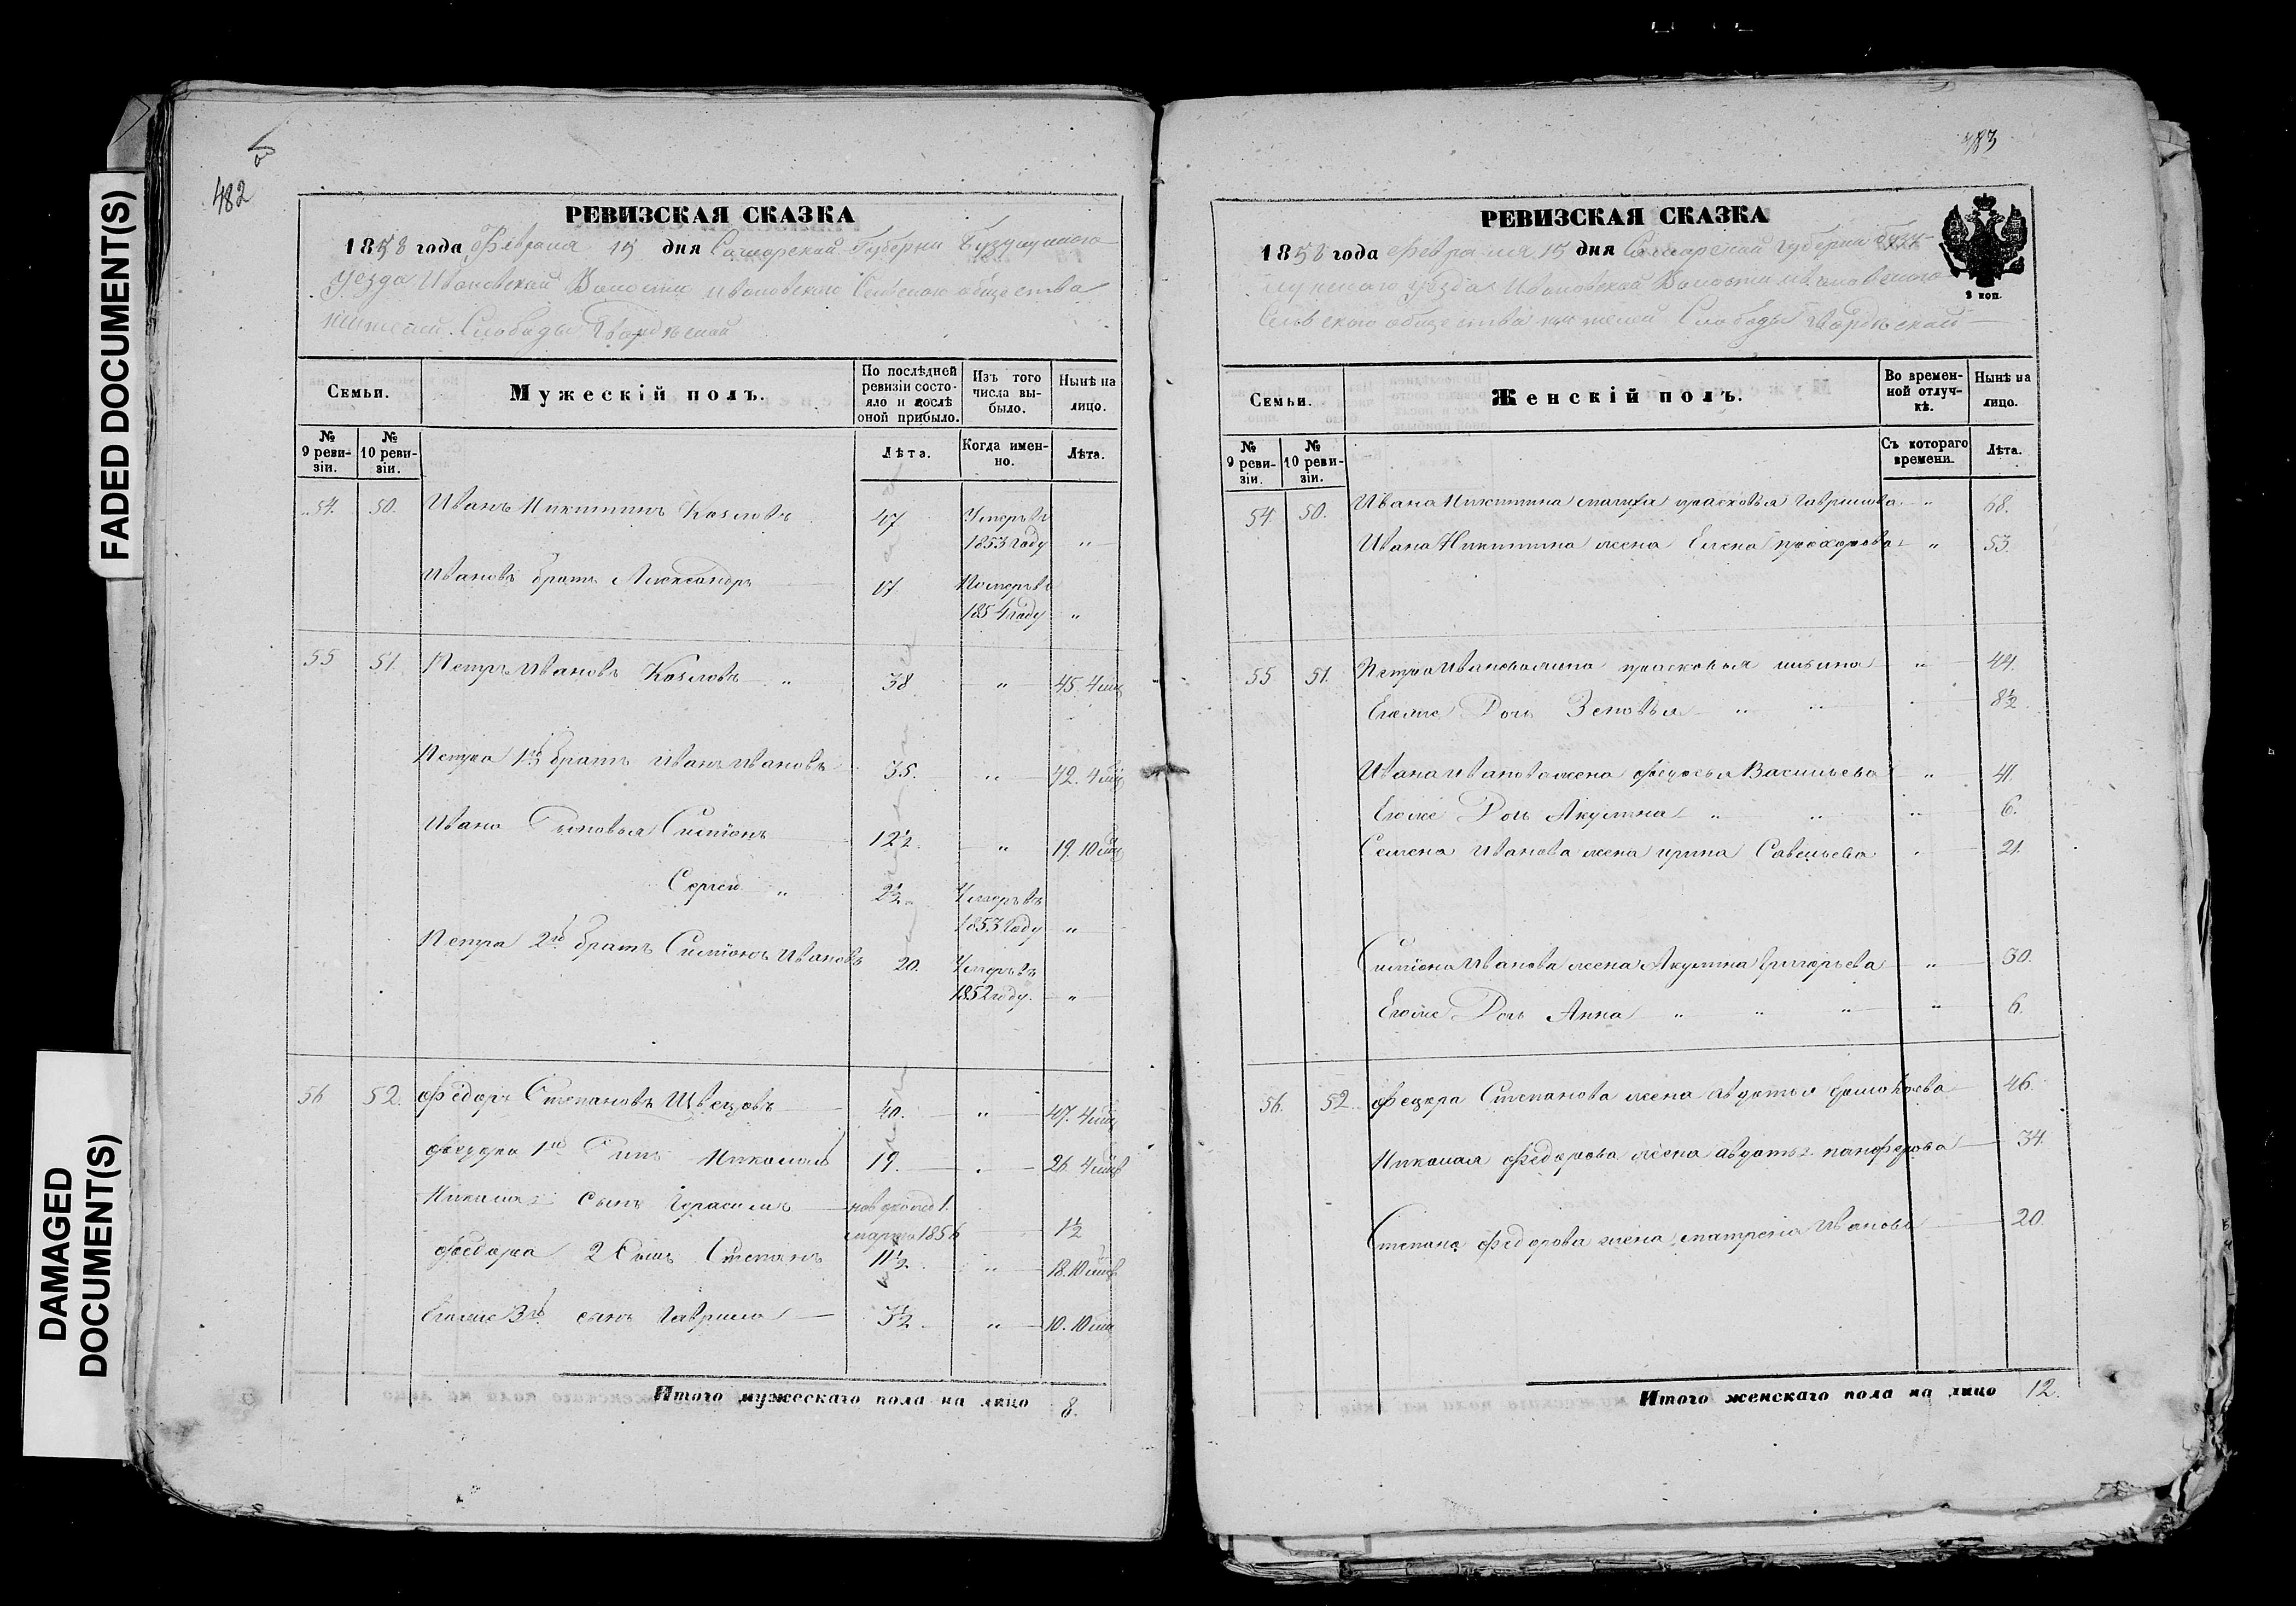 FADED DOCUMENT(S)
DAMAGED
DOCUMENT(S)
482
РЕВИЗСКАЯ СКАЗКА
1858 года Февраля 15 дня Самарской Губернии Бузулукского
уезда Ивановской Волости Ивановского Сельского общества
жителей Слободы Гвардейской
Семьи.
Мужескій полъ.
По послѣдней ревизіи состояло и послѣ оной прибыло.
Изъ того числа выбыло.
Нынѣ на лицо.
№ 9 ревизіи.
№ 10 ревизіи.
Лѣта.
Когда именно.
Лѣта.
54. 50. Иванъ Никитинъ Козловъ 47 Умеръ въ
1853 году "
Ивановъ братъ Александръ 17. Померъ въ
1854 году "
55 51. Петръ Ивановъ Козловъ " 38 " 45. 4 мц
Петра 1й братъ Иванъ Ивановъ 35. " 42. 4 мц
Ивана Сыновья Симіонъ 12½ " 19. 10 мц
Сергей " 2½ Умеръ въ
1853 году "
Петра 2й братъ Симіонъ Ивановъ 20. Умеръ въ
1852 году. "
56 52. Федоръ Степановъ Швецовъ 40. " 47. 4 мц
Федора 1й Сынъ Николай 19. " 26. 4 мцв
Николая сынъ Герасимъ новорожд 1.
марта 1856 1½
Федора 2 Сынъ Степанъ 11½ " 18. 10 мцв
Егоже 3й сынъ Гаврило 3½ " 10. 10 мц
Итого мужескаго пола на лицо 8.
483
РЕВИЗСКАЯ СКАЗКА
1858 года Февраля 15 дня Самарской Губернии Бузу-
лукского уезда Ивановской Волости Ивановского
Сельского общества жителей Слободы Гвардейской
2 коп.
Семьи.
Женскій полъ.
Во временной отлучкѣ.
Нынѣ на лицо.
№ 9 ревизіи.
№ 10 ревизіи.
Съ котораго времени.
Лѣта.
54. 50. Ивана Никитина мачиха прасковья Гаврилова " 68.
Ивана Никитина жена Елена прохорова " 53.
55 51. Петра Иванова жена прасковья ильина " 44.
Егоже Дочь Зеновья " " 8½
Ивана Иванова жена федосья Васильева " 41.
Егоже Дочь Акулина " " " 6.
Семена Иванова жена ирина Савельева " 21.
Симіона Иванова жена Акулина Григорьева " 30.
Егоже Дочь Анна " " " " 6.
56. 52. Федора Степанова жена авдотья 46.
Николая федорова жена авдотья панферова 34.
Степана федорова жена матрена Иванова 20.
Итого женскаго пола на лицо 12.